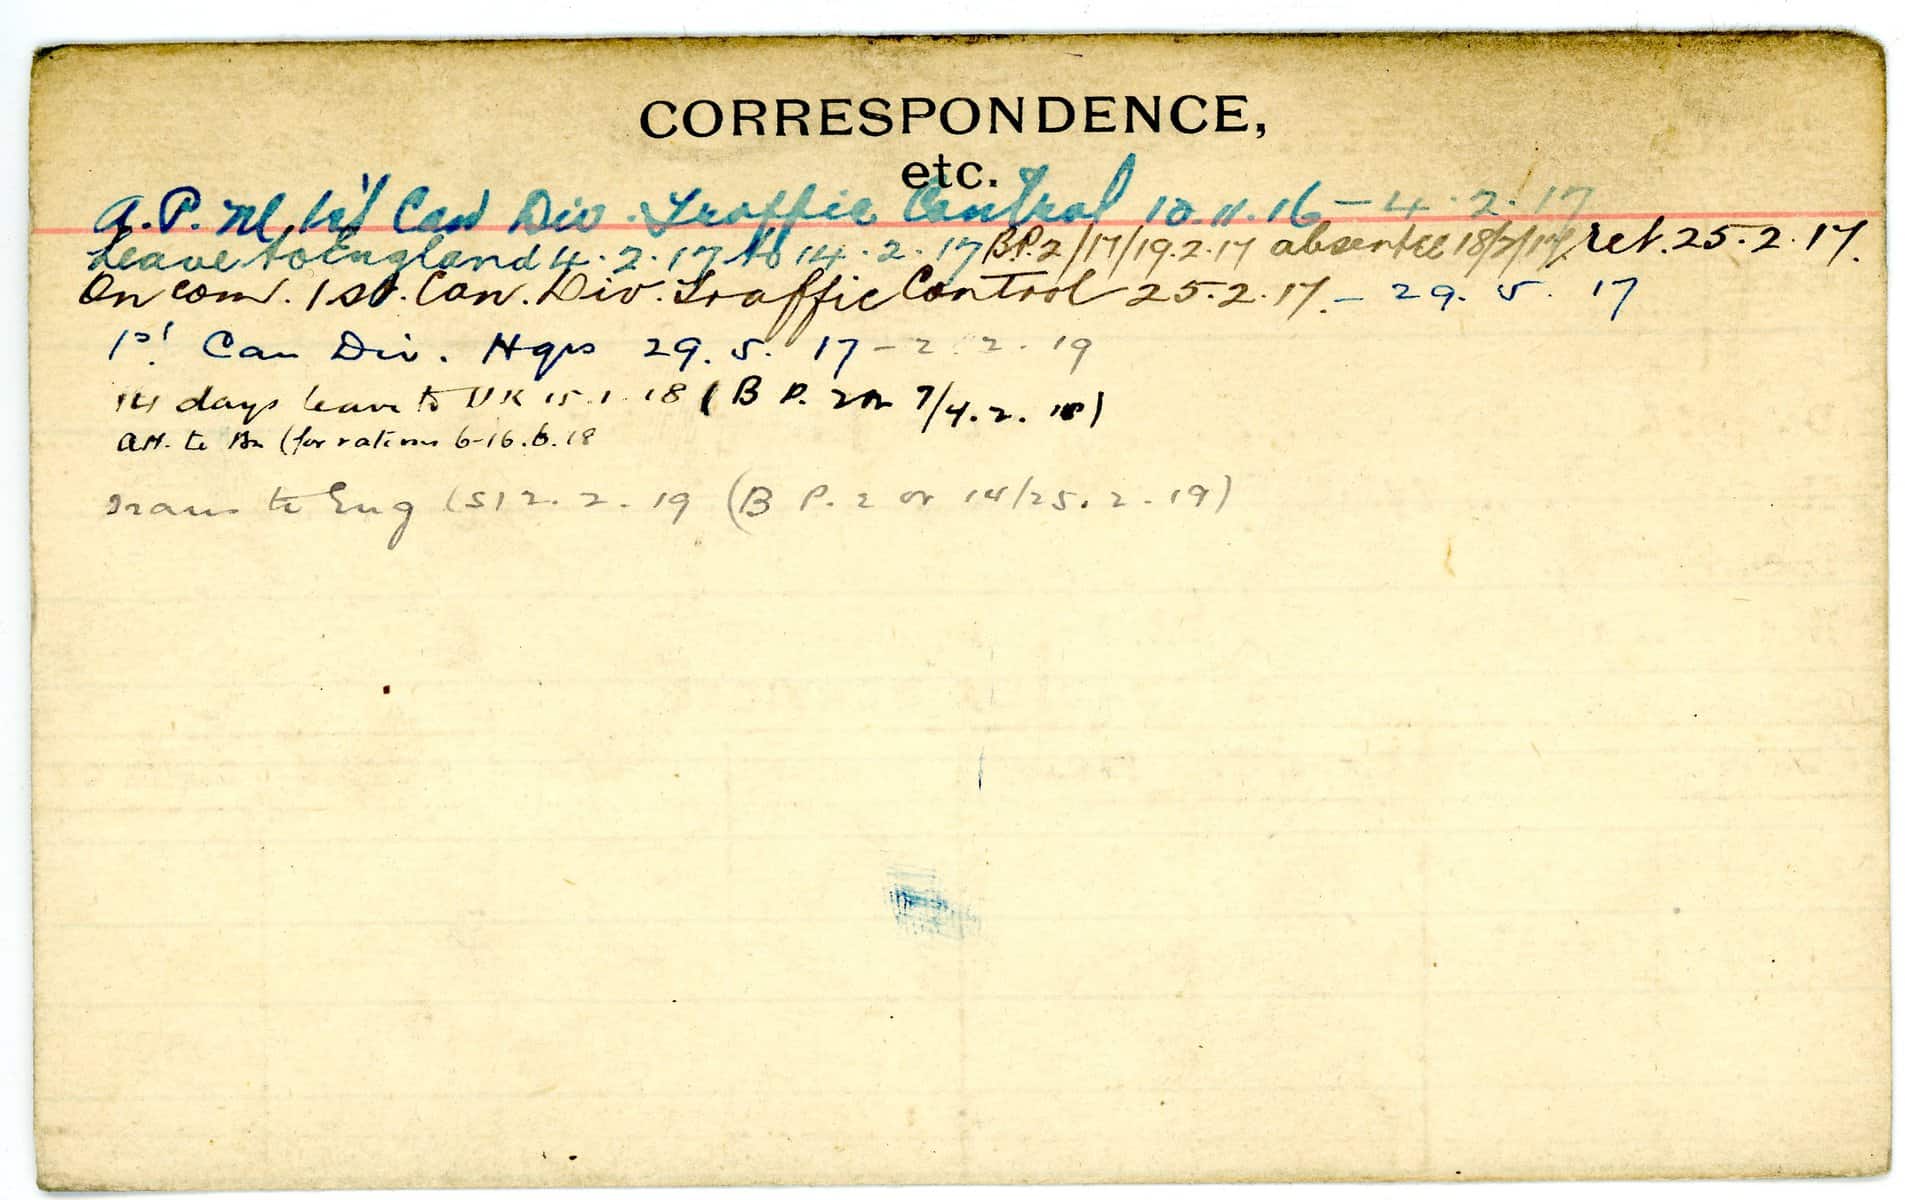 CORRESPONDENCE,
etc.
A.P.M. 1st Can Div. Traffic Control 10.11.16 – 4.2.17
Leave to England 4.2.17 to 14.2.17 B.P.2/17/19.2.17 absentee 18/2/17 ret. 25.2.17.
On com. 1st. Can. Div. Traffic Control 25.2.17. – 29.5.17
1st Can Div. Hqrs 29.5.17 – 2.2.19
14 days leave to UK 15.1.18 (B P. 2 or 7/4.2.18)
att. to Bn (for rations 6-16.6.18
Trans to Eng (S) 2.2.19 (B P. 2 or 14/25.2.19)